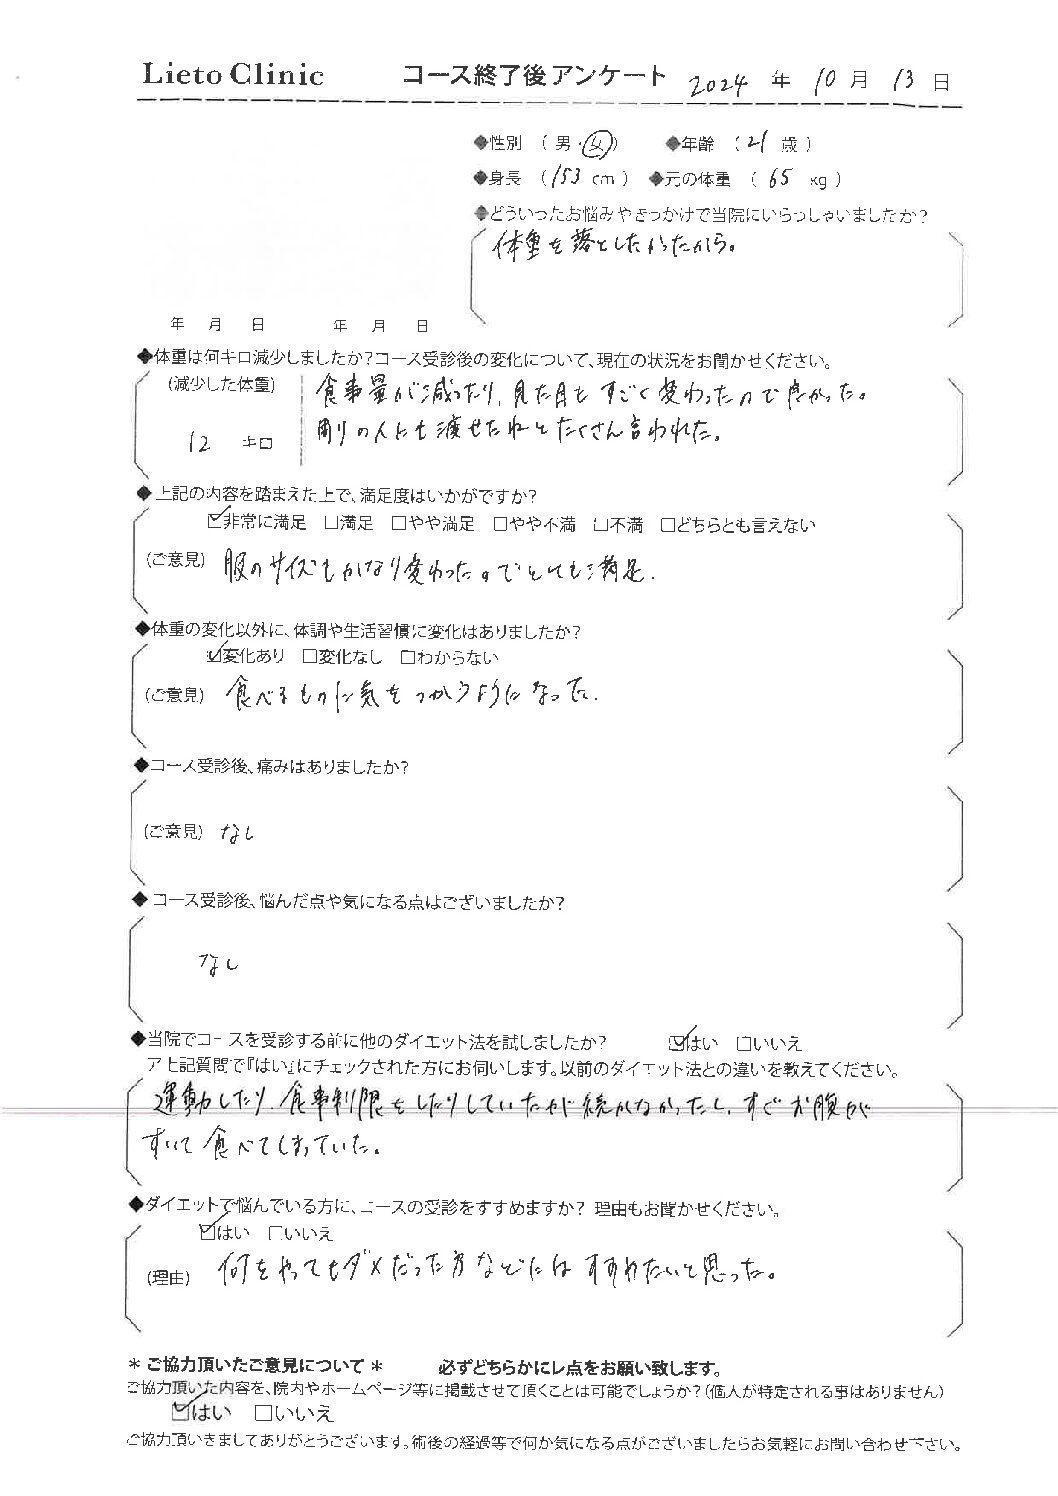 Lieto Clinic コース終了後アンケート 2024 年 10 月 13 日
◆性別 （ 男・女 ） ◆年齢 （ 21 歳 ）
◆身長 （ 153 cm ） ◆元の体重 （ 65 kg ）
◆どういったお悩みやきっかけで当院にいらっしゃいましたか?
体重を落としたかったから。
年 月 日 年 月 日
◆体重は何キロ減少しましたか?コース受診後の変化について、現在の状況をお聞かせください。
(減少した体重) 食事量が減ったり、見た目もすごく変わったので良かった。
12 キロ 周りの人にも痩せたねとたくさん言われた。
◆上記の内容を踏まえた上で、満足度はいかがですか?
☑非常に満足 □満足 □やや満足 □やや不満 □不満 □どちらとも言えない
(ご意見) 服のサイズもかなり変わったのでとても満足.
◆体重の変化以外に、体調や生活習慣に変化はありましたか?
☑変化あり □変化なし □わからない
(ご意見) 食べるものに気をつかうようになった.
◆コース受診後、痛みはありましたか?
(ご意見) なし
◆コース受診後、悩んだ点や気になる点はございましたか?
なし
◆当院でコースを受診する前に他のダイエット法を試しましたか? ☑はい □いいえ
ア上記質問で『はい』にチェックされた方にお伺いします。以前のダイエット法との違いを教えてください。
運動したり、食事制限をしたりしていたが続かなかったし、すぐお腹が
すいて食べてしまっていた。
◆ダイエットで悩んでいる方に、コースの受診をすすめますか? 理由もお聞かせください。
☑はい □いいえ
(理由) 何をやってもダメだった方などにはすすめたいと思った。
＊ご協力頂いたご意見について＊ 必ずどちらかにレ点をお願い致します。
ご協力頂いた内容を、院内やホームページ等に掲載させて頂くことは可能でしょうか?(個人が特定される事はありません)
☑はい □いいえ
ご協力頂いきましてありがとうございます。術後の経過等で何か気になる点がございましたらお気軽にお問い合わせ下さい。